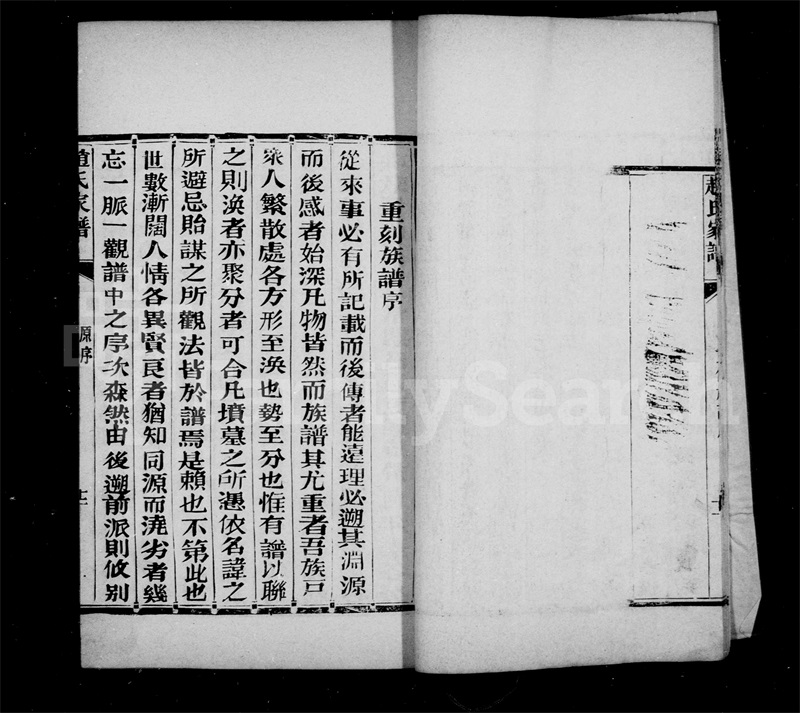 趙氏家譜
重刻族譜序
從來事必有所記載而後傳者能遠理必遡其淵源
而後感者始深凡物皆然而族譜其尤重者吾族戸
衆人繁散處各方形至渙也勢至分也惟有譜以聯
之則渙者亦聚分者可合凡墳墓之所憑依名諱之
所避忌貽謀之所觀法皆於譜焉是賴也不第此也
世數漸闊人情各異賢良者猶知同源而澆劣者幾
忘一脈一觀譜中之序次森然由後遡前派則攸别
趙氏家譜
原序
FamilySearch